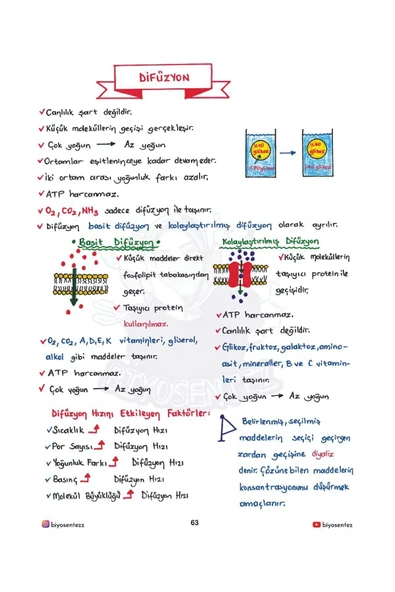 DİFÜZYON
✓Canlılık şart değildir.
✓Küçük moleküllerin geçişi gerçekleşir.
✓ Çok yoğun → Az yoğun
✓Ortamlar eşitleninceye kadar devam eder.
✓İki ortam arası yoğunluk farkı azalır.
✓ATP harcanmaz.
✓O2, CO2, NH3 sadece difüzyon ile taşınır.
✓Difüzyon basit difüzyon ve kolaylaştırılmış difüzyon olarak ayrılır.
Basit Difüzyon
✓Küçük maddeler direkt
fosfolipit tabakasından
geçer.
✓ Taşıyıcı protein
kullanılmaz.
✓O2, CO2, A,D,E,K vitaminleri, gliserol,
alkol gibi maddeler taşınır.
✓ ATP harcanmaz.
✓ Çok yoğun → Az yoğun
Kolaylaştırılmış Difüzyon
✓Küçük moleküllerin
taşıyıcı protein ile
geçişidir.
✓ATP harcanmaz.
✓Canlılık şart değildir.
✓Glikoz, fruktoz, galaktoz, amino-
asit, mineraller, B ve C vitamin-
leri taşınır.
✓Çok yoğun → Az yoğun
Difüzyon Hızını Etkileyen Faktörler:
✓Sıcaklık Difüzyon Hızı
✓Por Sayısı Difüzyon Hızı
✓Yoğunluk Farkı Difüzyon Hızı
✓Basınç Difüzyon Hızı
✓Molekül Büyüklüğü Difüzyon Hızı
Belirlenmiş, seçilmiş
maddelerin seçici geçirgen
zardan geçişine diyaliz
denir. Çözünebilen maddelerin
konsantrasyonunu düşürmek
amaçlanır.
biyosentezz
63
biyosentez